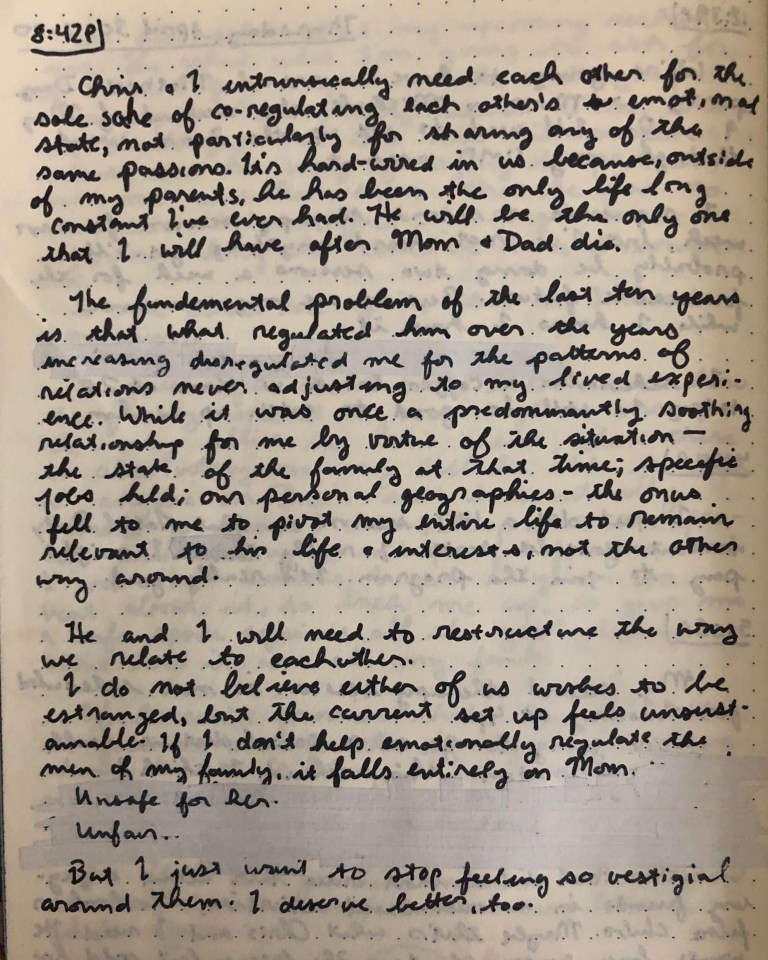 8:42P
Chris & I intrinsically need each other for the
sole sake of co-regulating each other's emotional
state, not particularly for sharing any of the
same passions. It's hard-wired in us because, outside
of my parents, he has been the only life long
constant I've ever had. He will be the only one
that I will have after Mom & Dad die.
The fundemental problem of the last ten years
is that what regulated him over the years
increasing disregulated me for the patterns of
relations never adjusting to my lived experi-
ence. While it was once a predominantly soothing
relationship for me by virtue of the situation —
the state of the family at that time; specific
jobs held; our personal geographies - the onus
fell to me to pivot my entire life to remain
relevant to his life & interests, not the other
way around.
He and I will need to restructure the way
we relate to eachother.
I do not believe either of us wishes to be
estranged, but the current set up feels unsust-
ainable. If I don't help emotionally regulate the
men of my family, it falls entirely on Mom.
Unsafe for her.
Unfair..
But I just want to stop feeling so vestigial
around them. I deserve better, too.